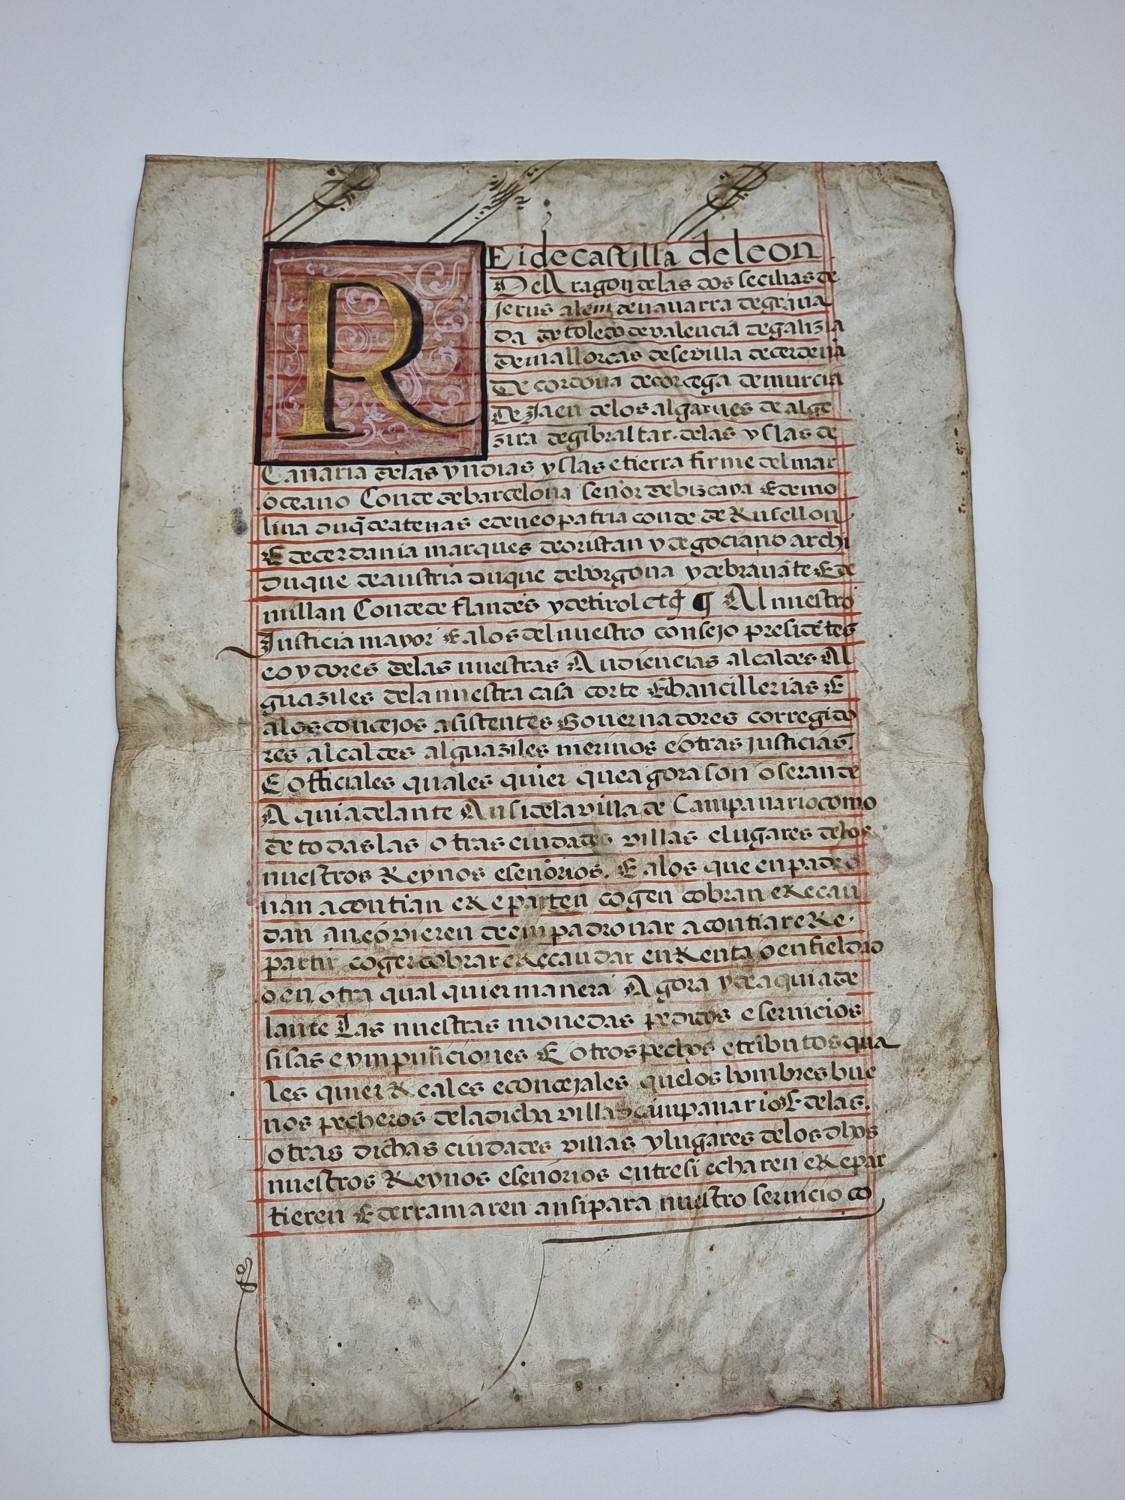 REi de castilla de leon
De Aragon de las dos secilias de
Jerus alem de nauarra de grana
da de toledo de valencia de galizia
de mallorcas de sevilla de cerdeña
de cordoua de corcega de murcia
de Jaen de los algarues de alge
zira de gibraltar. de las yslas de
Canaria de las yndias yslas e tierra firme del mar
oceano Conde de barcelona señor de bizcaya E de mo
lina duq̄ de atenas e de neopatria conde de Rusellon
E de cerdania marques de oristan y de gociano archi
duque de austria duque de borgoña y de brauāte E de
millan Conde de flandes y de tirol etc̄ ¶ Al nuestro
Justicia mayor E a los del nuestro consejo presidētes
e oydores de las nuestras Audiencias alcaldes Al
guaziles de la nuestra casa corte E hancillerias E
a los concejos asistentes Gouernadores corregido
res alcaldes alguaziles merinos e otras justicias
E officiales quales quier que agora son o seran de
Aqui adelante Ansi de la villa de Campanario como
de todas las otras ciudades villas e lugares de los
nuestros Reynos e señorios. E a los que enpadro
nan acontian e Reparten cogen cobran e Recau
dan an e ovieren de empadronar acontiar e Re.
partir coger cobrar e Recaudar en Renta o en fieldad
o en otra qual quier manera Agora y de aqui ade
lante Las nuestras monedas pedidos e seruicios
sisas e ympusiciones E otros pechos e tributos qua
les quier Reales e concejales que los hombres bue
nos pecheros de la dicha villa de campanario E de las.
otras dichas ciudades villas y lugares de los dhos
nuestros Reynos e señorios entre si echaren e Repar
tieren E derramaren ansi para nuestro seruicio co